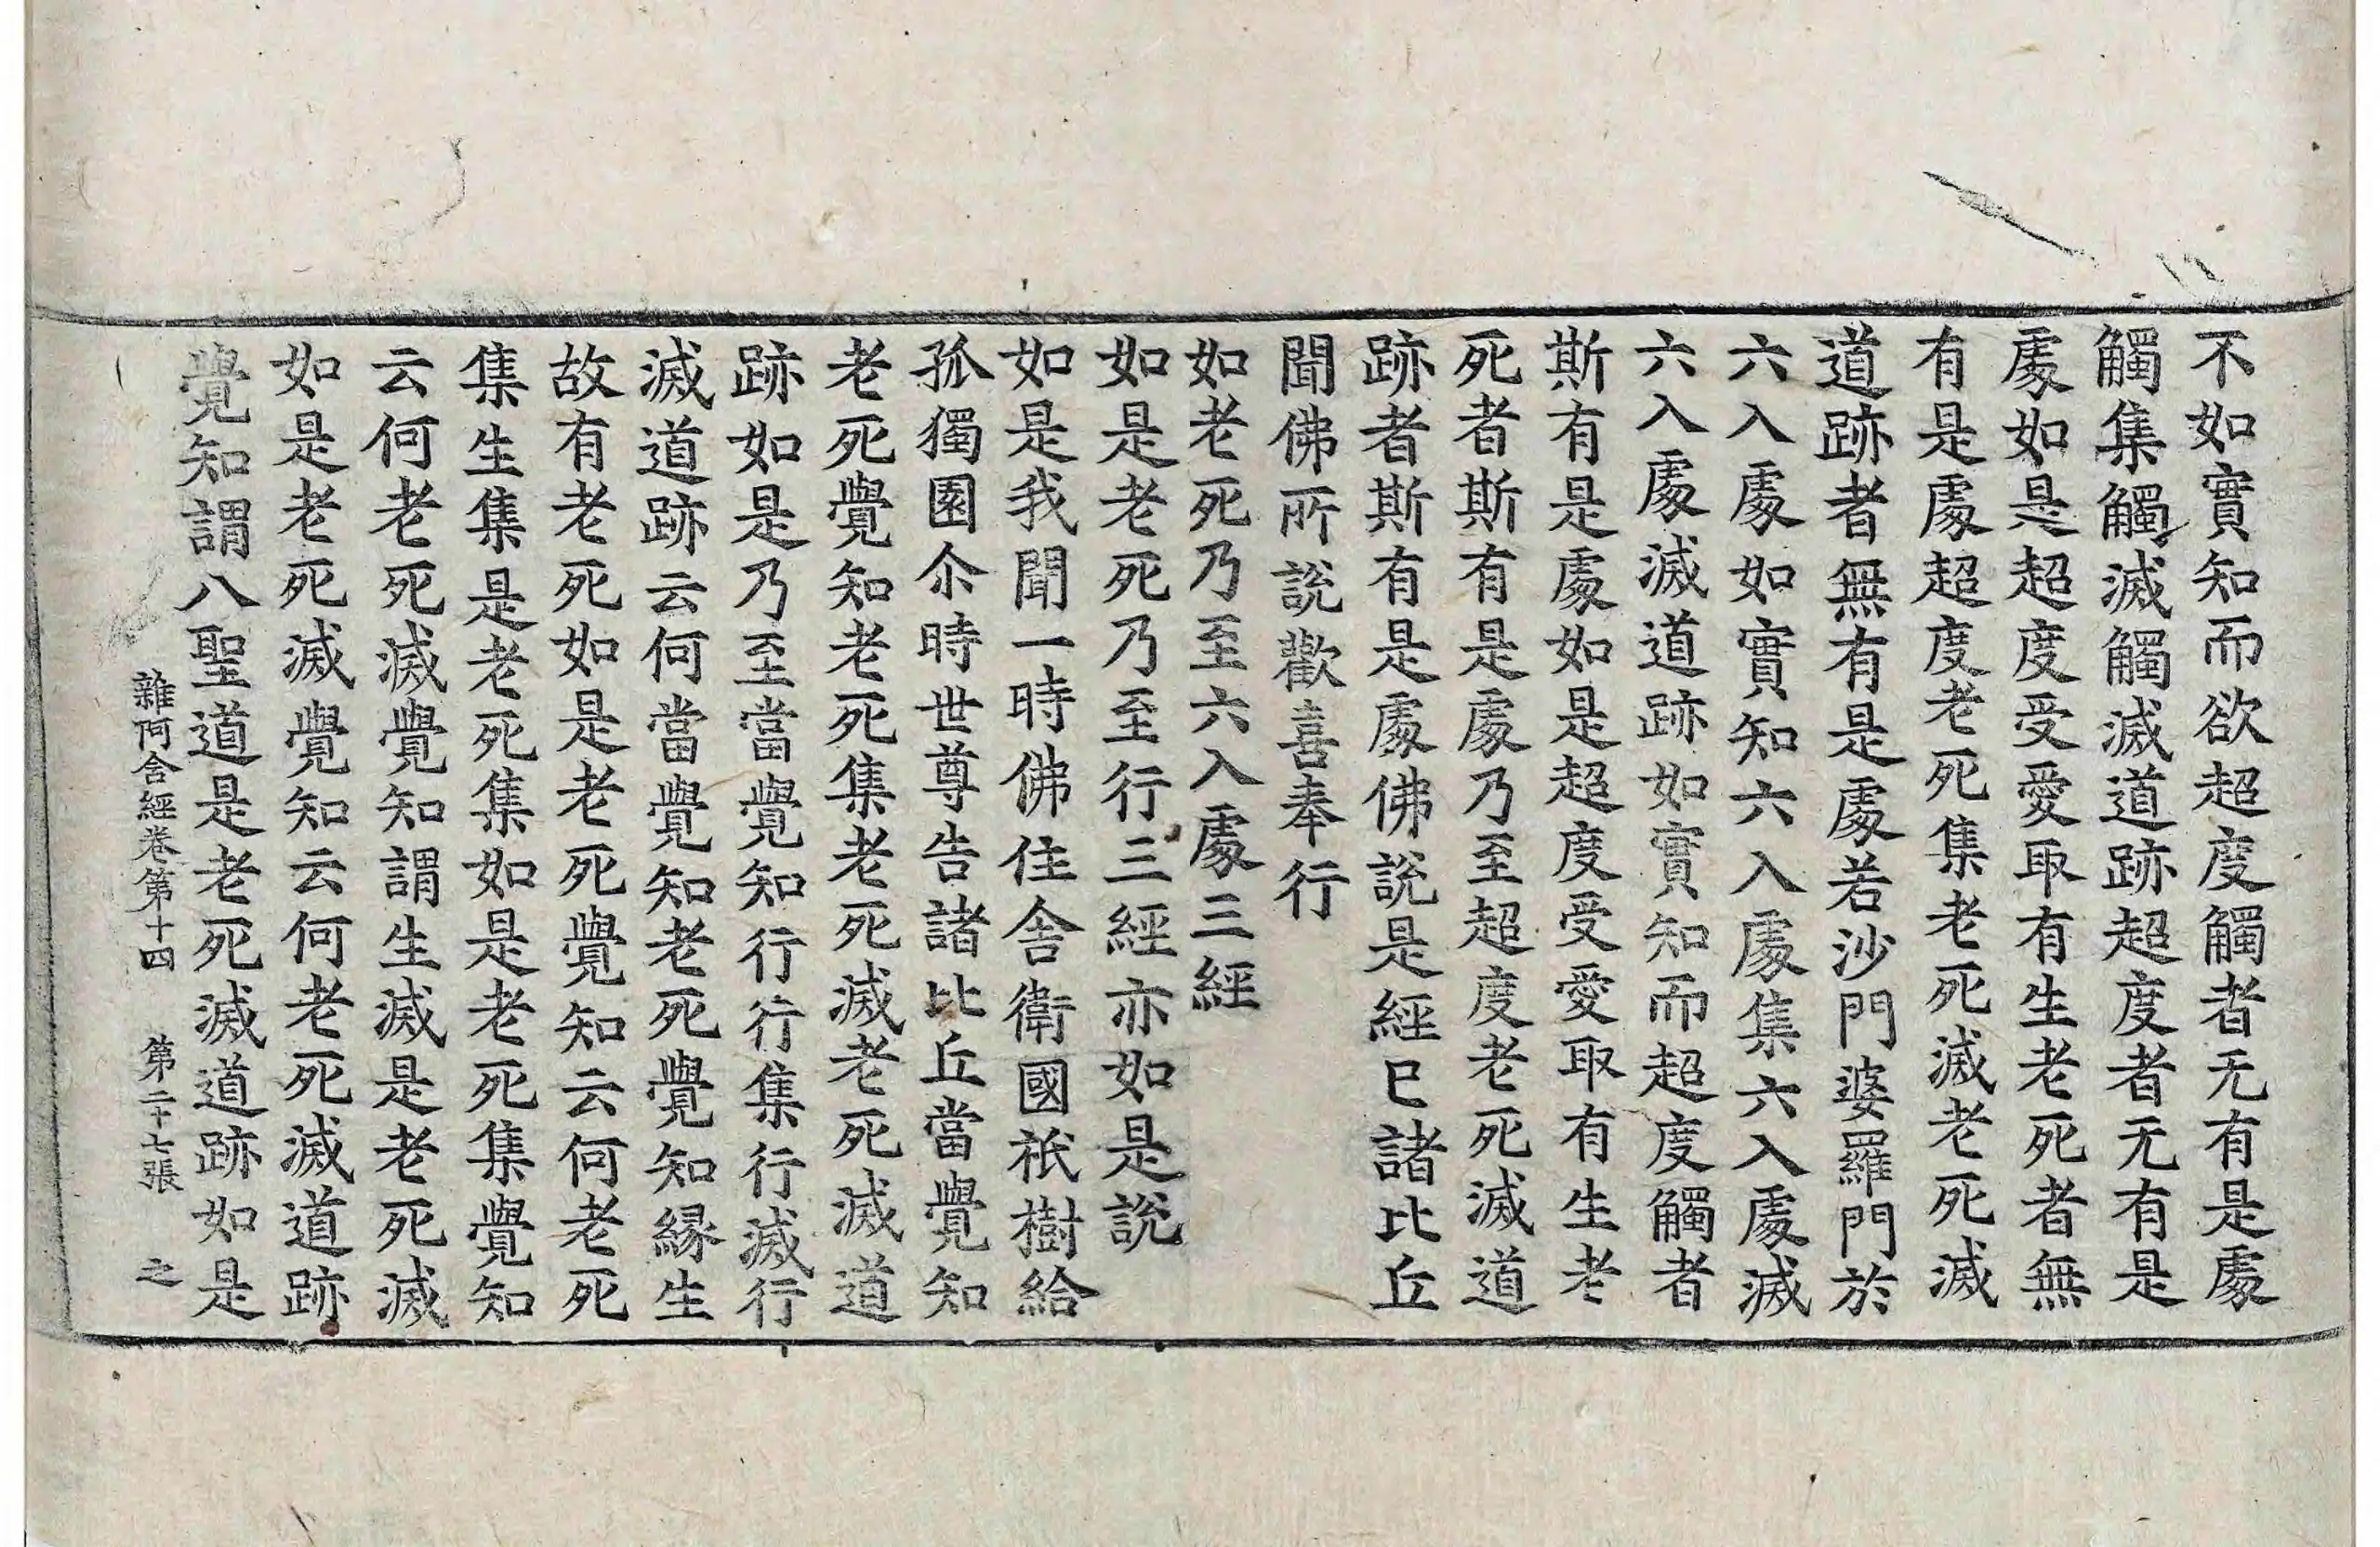 不如實知而欲超度觸者无有是處
觸集觸滅觸滅道跡超度者无有是
處如是超度受愛取有生老死者無
有是處超度老死集老死滅老死滅
道跡者無有是處若沙門婆羅門於
六入處如實知六入處集六入處滅
六入處滅道跡如實知而超度觸者
斯有是處如是超度受愛取有生老
死者斯有是處乃至超度老死滅道
跡者斯有是處佛說是經已諸比丘
聞佛所說歡喜奉行
如老死乃至六入處三經
如是老死乃至行三經亦如是說
如是我聞一時佛住舍衛國祇樹給
孤獨園尒時世尊告諸比丘當覺知
老死覺知老死集老死滅老死滅道
跡如是乃至當覺知行行集行滅行
滅道跡云何當覺知老死覺知緣生
故有老死如是老死覺知云何老死
集生集是老死集如是老死集覺知
云何老死滅覺知謂生滅是老死滅
如是老死滅覺知云何老死滅道跡
覺知謂八聖道是老死滅道跡如是
雜阿含經卷第十四 第二十七張 之